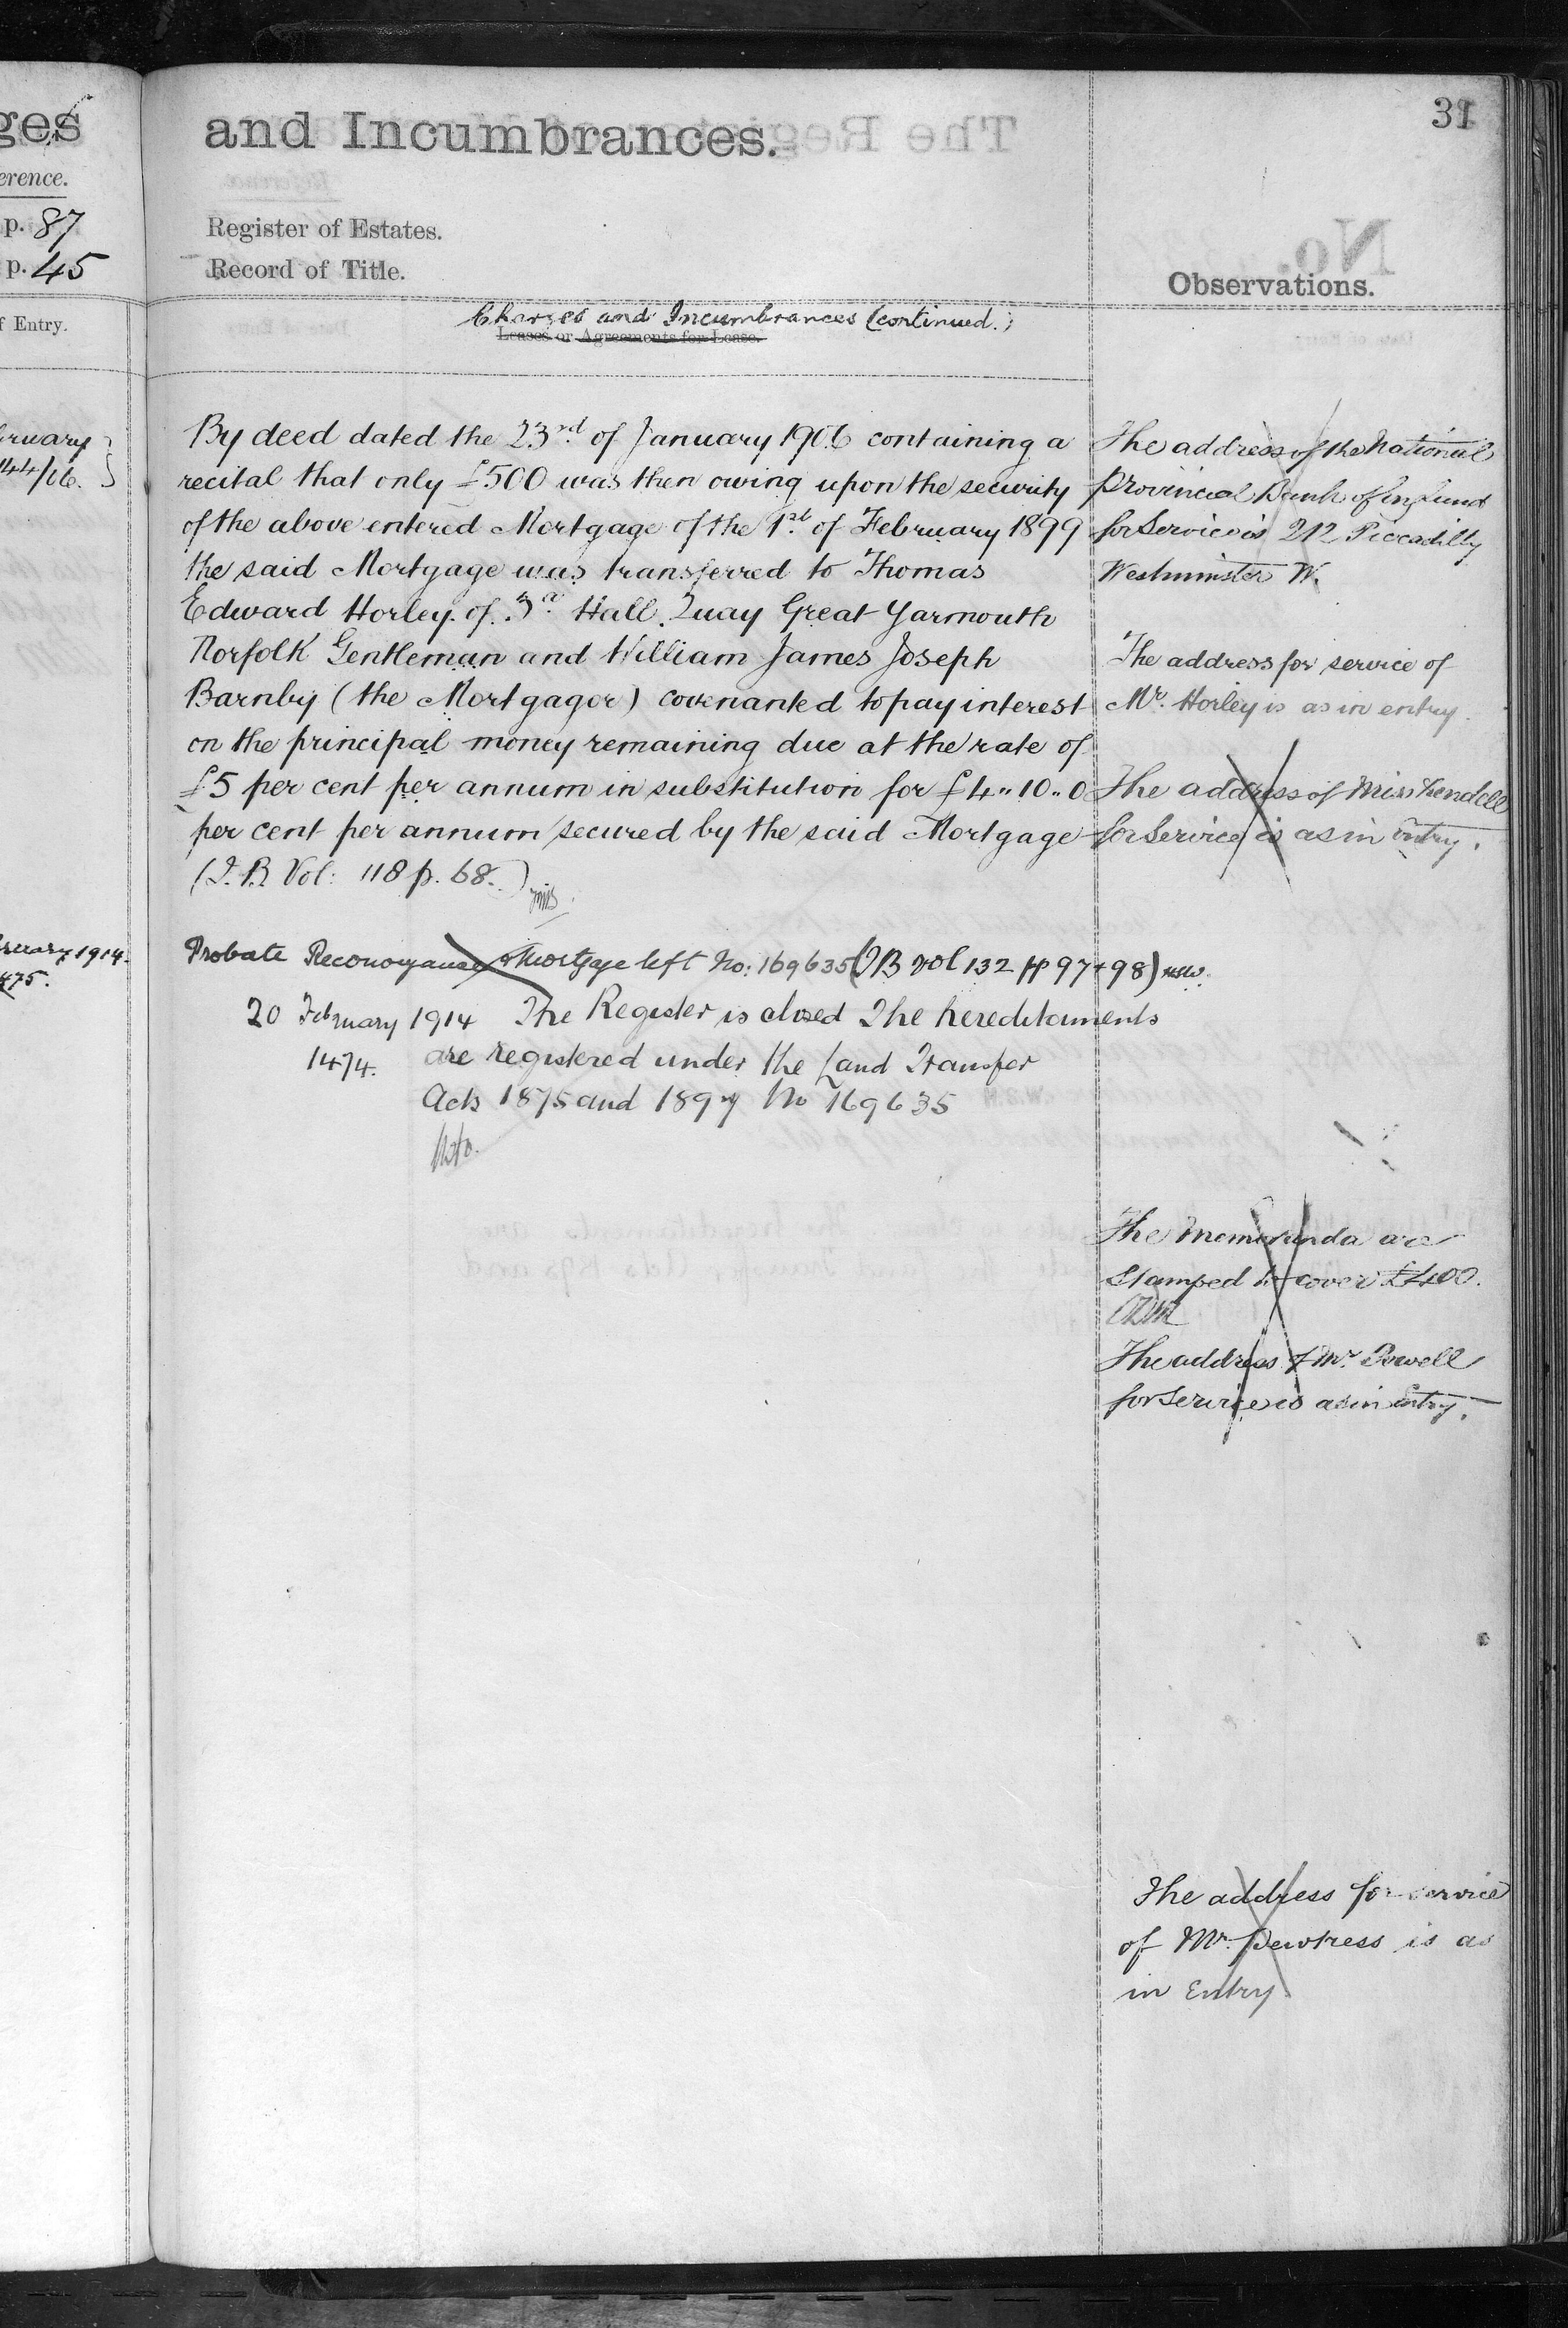 ges
erence.
p. 87
p. 45
f Entry.
bruary
144/06.
bruary 1914.
475.
31
and Incumbrances.
Register of Estates.
Record of Title.
Observations.
Charges and Incumbrances (continued.)
Leases or Agreements for Lease.
By deed dated the 23rd of January 1906 containing a
recital that only £500 was then owing upon the security
of the above entered Mortgage of the 1st of February 1899
the said Mortgage was transferred to Thomas
Edward Horley of 3a Hall Quay Great Yarmouth
Norfolk Gentleman and William James Joseph
Barnby (the Mortgagor) covenanted to pay interest
on the principal money remaining due at the rate of
£5 per cent per annum in substitution for £4..10..0
per cent per annum secured by the said Mortgage
(I.B. Vol: 118 p. 68.)
Probate Reconveyance & Mortgage left No: 169635 (IB vol 132 pp 97+98)
20 February 1914 The Register is closed The hereditaments
1474. are registered under the Land Transfer
Acts 1875 and 1897 No 169635
The address of the National
Provincial Bank of England
for Service is 212 Piccadilly
Westminster W.
The address for service of
Mr. Horley is as in entry.
The address of Miss Kendell
for Service is as in Entry.
The Memoranda are
Stamped to cover £400.
The address of Mr. Powell
for Service is as in Entry.
The address for service
of Mr. Pewtress is as
in Entry